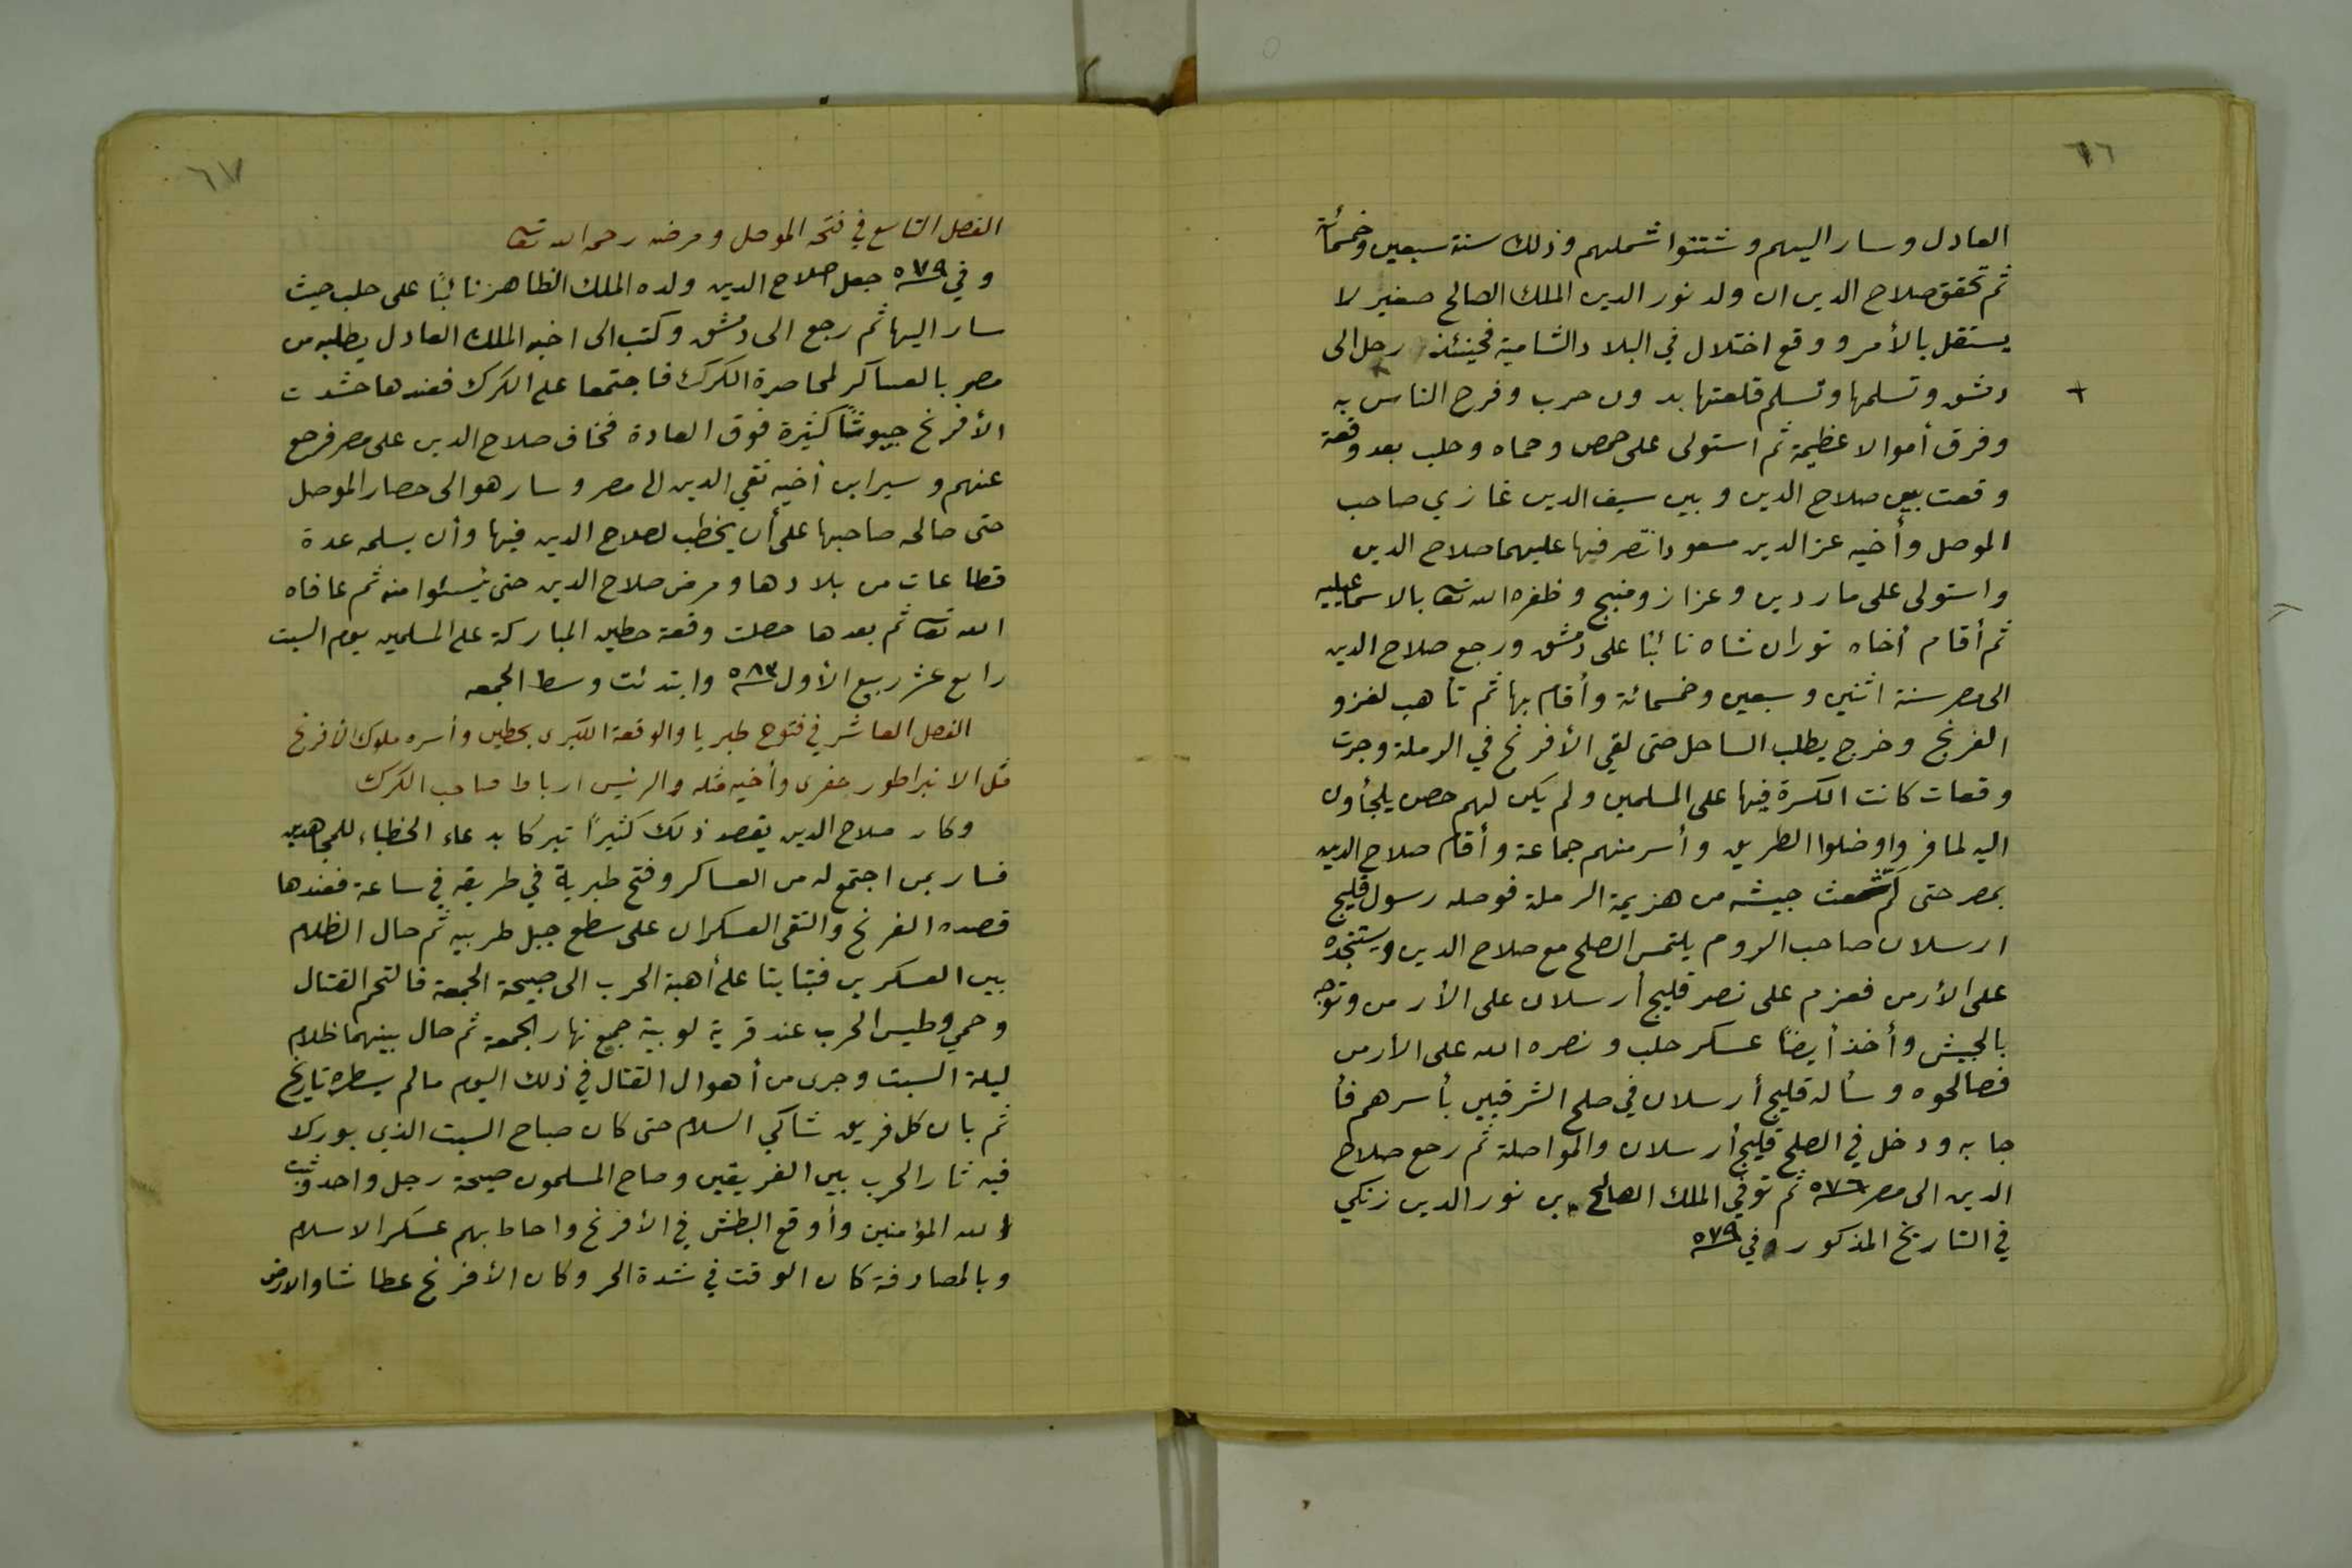 ٦٦
العادل وسار اليهم وشتتوا شملهم وذلك سنة سبعين وخمسمائة
ثم تحقق صلاح الدين ان ولد نور الدين الملك الصالح صغير لا
يستقل بالأمر ووقع اختلال في البلاد الشامية فحينئذ رحل الى
دمشق وتسلمها وتسلم قلعتها بدون حرب وفرح الناس به
وفرق أموالا عظيمة ثم استولى على حمص وحماه وحلب بعد وقعة
وقعت بين صلاح الدين وبين سيف الدين غازي صاحب
الموصل وأخيه عز الدين مسعود انتصر فيها عليهما صلاح الدين
واستولى على ماردين وعزاز ومنبج وظفره الله تعا بالاسماعيليه
ثم أقام أخاه توران شاه نائبًا على دمشق ورجع صلاح الدين
الى مصر سنة اثنين وسبعين وخمسمائة وأقام بها ثم تأهب لغزو
الفرنج وخرج يطلب الساحل حتى لقي الأفرنج في الرملة وجرت
وقعات كانت الكسرة فيها على المسلمين ولم يكن لهم حصن يلجأون
اليه لما فروا وضلوا الطريق وأسر منهم جماعة وأقام صلاح الدين
بمصر حتى لم شعث جيشه من هزيمة الرملة فوصله رسول قليج
ارسلان صاحب الروم يلتمس الصلح مع صلاح الدين ويستنجده
على الأرمن فعزم على نصر قليج أرسلان على الأرمن وتوجه
بالجيش وأخذ أيضًا عسكر حلب ونصره الله على الأرمن
فصالحوه وسأله قليج أرسلان في صلح الشرقيين بأسرهم فأ
جابه ودخل في الصلح قليج أرسلان والمواصلة ثم رجع صلاح
الدين الى مصر ٥٧٦ ثم توفي الملك الصالح بن نور الدين زنكي
في التاريخ المذكور وفي ٥٧٩
٦٧
الفصل التاسع في فتحه الموصل ومرضه رحمه الله تعا
وفي ٥٧٩ جعل صلاح الدين ولده الملك الظاهر نائبًا على حلب حيث
سار اليها ثم رجع الى دمشق وكتب الى اخيه الملك العادل يطلبه من
مصر بالعساكر لمحاصرة الكرك فاجتمعا على الكرك فعندها حشدت
الأفرنج جيوشًا كثيرة فوق العادة فخاف صلاح الدين على مصر فرجع
عنهم وسير ابن أخيه تقي الدين الى مصر وسار هو الى حصار الموصل
حتى صالحه صاحبها على أن يخطب لصلاح الدين فيها وأن يسلمه عدة
قطاعات من بلادها ومرض صلاح الدين حتى يئسوا منه ثم عافاه
الله تعا ثم بعدها حصلت وقعة حطين المباركة على المسلمين يوم السبت
رابع عشر ربيع الأول ٥٨٣ وابتدئت وسط الجمعه
الفصل العاشر في فتوح طبريا والوقعة الكبرى بحطين وأسره ملوك الأفرنج
مثل الانبراطور جفرى وأخيه مثله والرئيس ارباط صاحب الكرك
وكان صلاح الدين يقصد ذلك كثيرًا تبركا بدعاء الخطباء للمجاهدين
فسار بمن اجتمع له من العساكر وفتح طبرية في طريقه في ساعة فعندها
قصده الفرنج والتقى العسكران على سطع جبل طبريه ثم حال الظلام
بين العسكرين فتبايتا على أهبة الحرب الى صبيحة الجمعة فالتحم القتال
وحمي وطيس الحرب عند قرية لوبية جميع نهار الجمعة ثم حال بينهما ظلام
ليلة السبت وجرى من أهوال القتال في ذلك اليوم مالم يسطره تاريخ
ثم بات كل فريق شاكي السلاح حتى كان صباح السبت الذي بورك لا
فيه ثار الحرب بين الفريقين وصاح المسلمون صيحة رجل واحد وثبت
الله المؤمنين وأوقع البطش في الأفرنج واحاط بهم عسكر الاسلام
وبالمصادفة كان الوقت في شدة الحر وكان الأفرنج عطاشا والارض